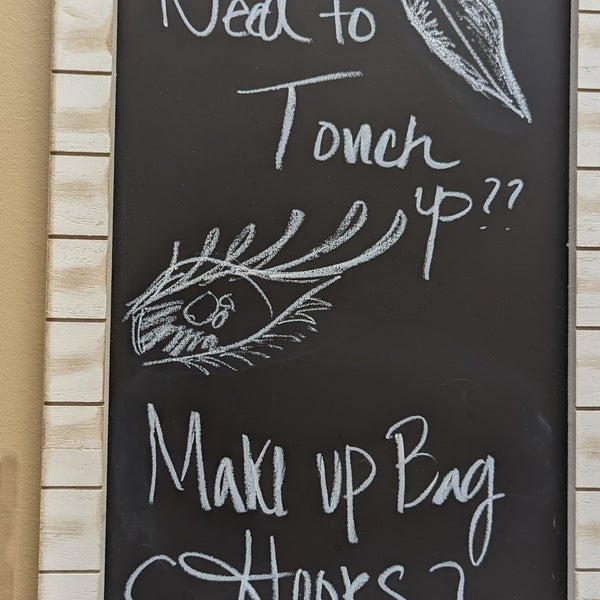 Need to
Touch
up??
Make up Bag
Hooks?